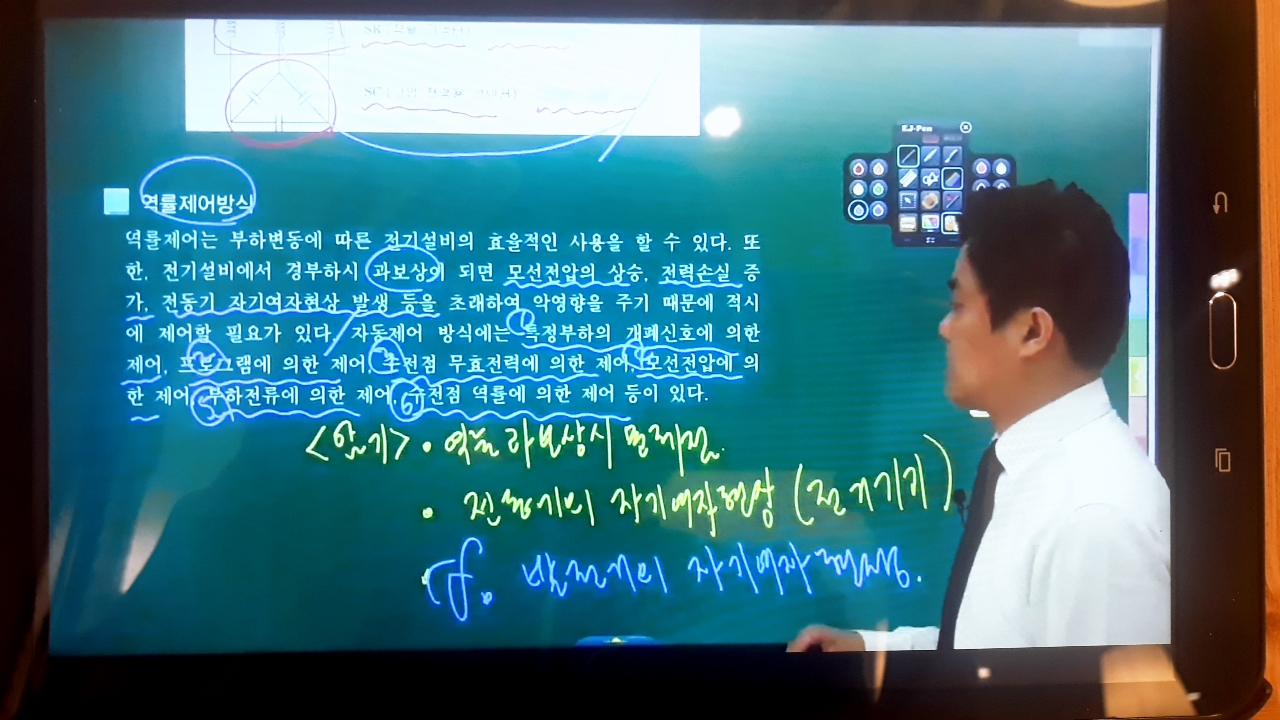 EJ-Pen
역률제어방식
역률제어는 부하변동에 따른 전기설비의 효율적인 사용을 할 수 있다. 또
한, 전기설비에서 경부하시 과보상이 되면 모선전압의 상승, 전력손실 증
가, 전동기 자기여자현상 발생 등을 초래하여 악영향을 주기 때문에 적시
에 제어할 필요가 있다. 자동제어 방식에는 ① 특정부하의 개폐신호에 의한
제어, ② 프로그램에 의한 제어, ③ 수전점 무효전력에 의한 제어, ④ 모선전압에 의
한 제어, ⑤ 부하전류에 의한 제어, ⑥ 수전점 역률에 의한 제어 등이 있다.
<암기> • 역률 과보상시 문제점.
• 전동기의 자기여자현상 (전기기기)
cf. 발전기의 자기여자현상.